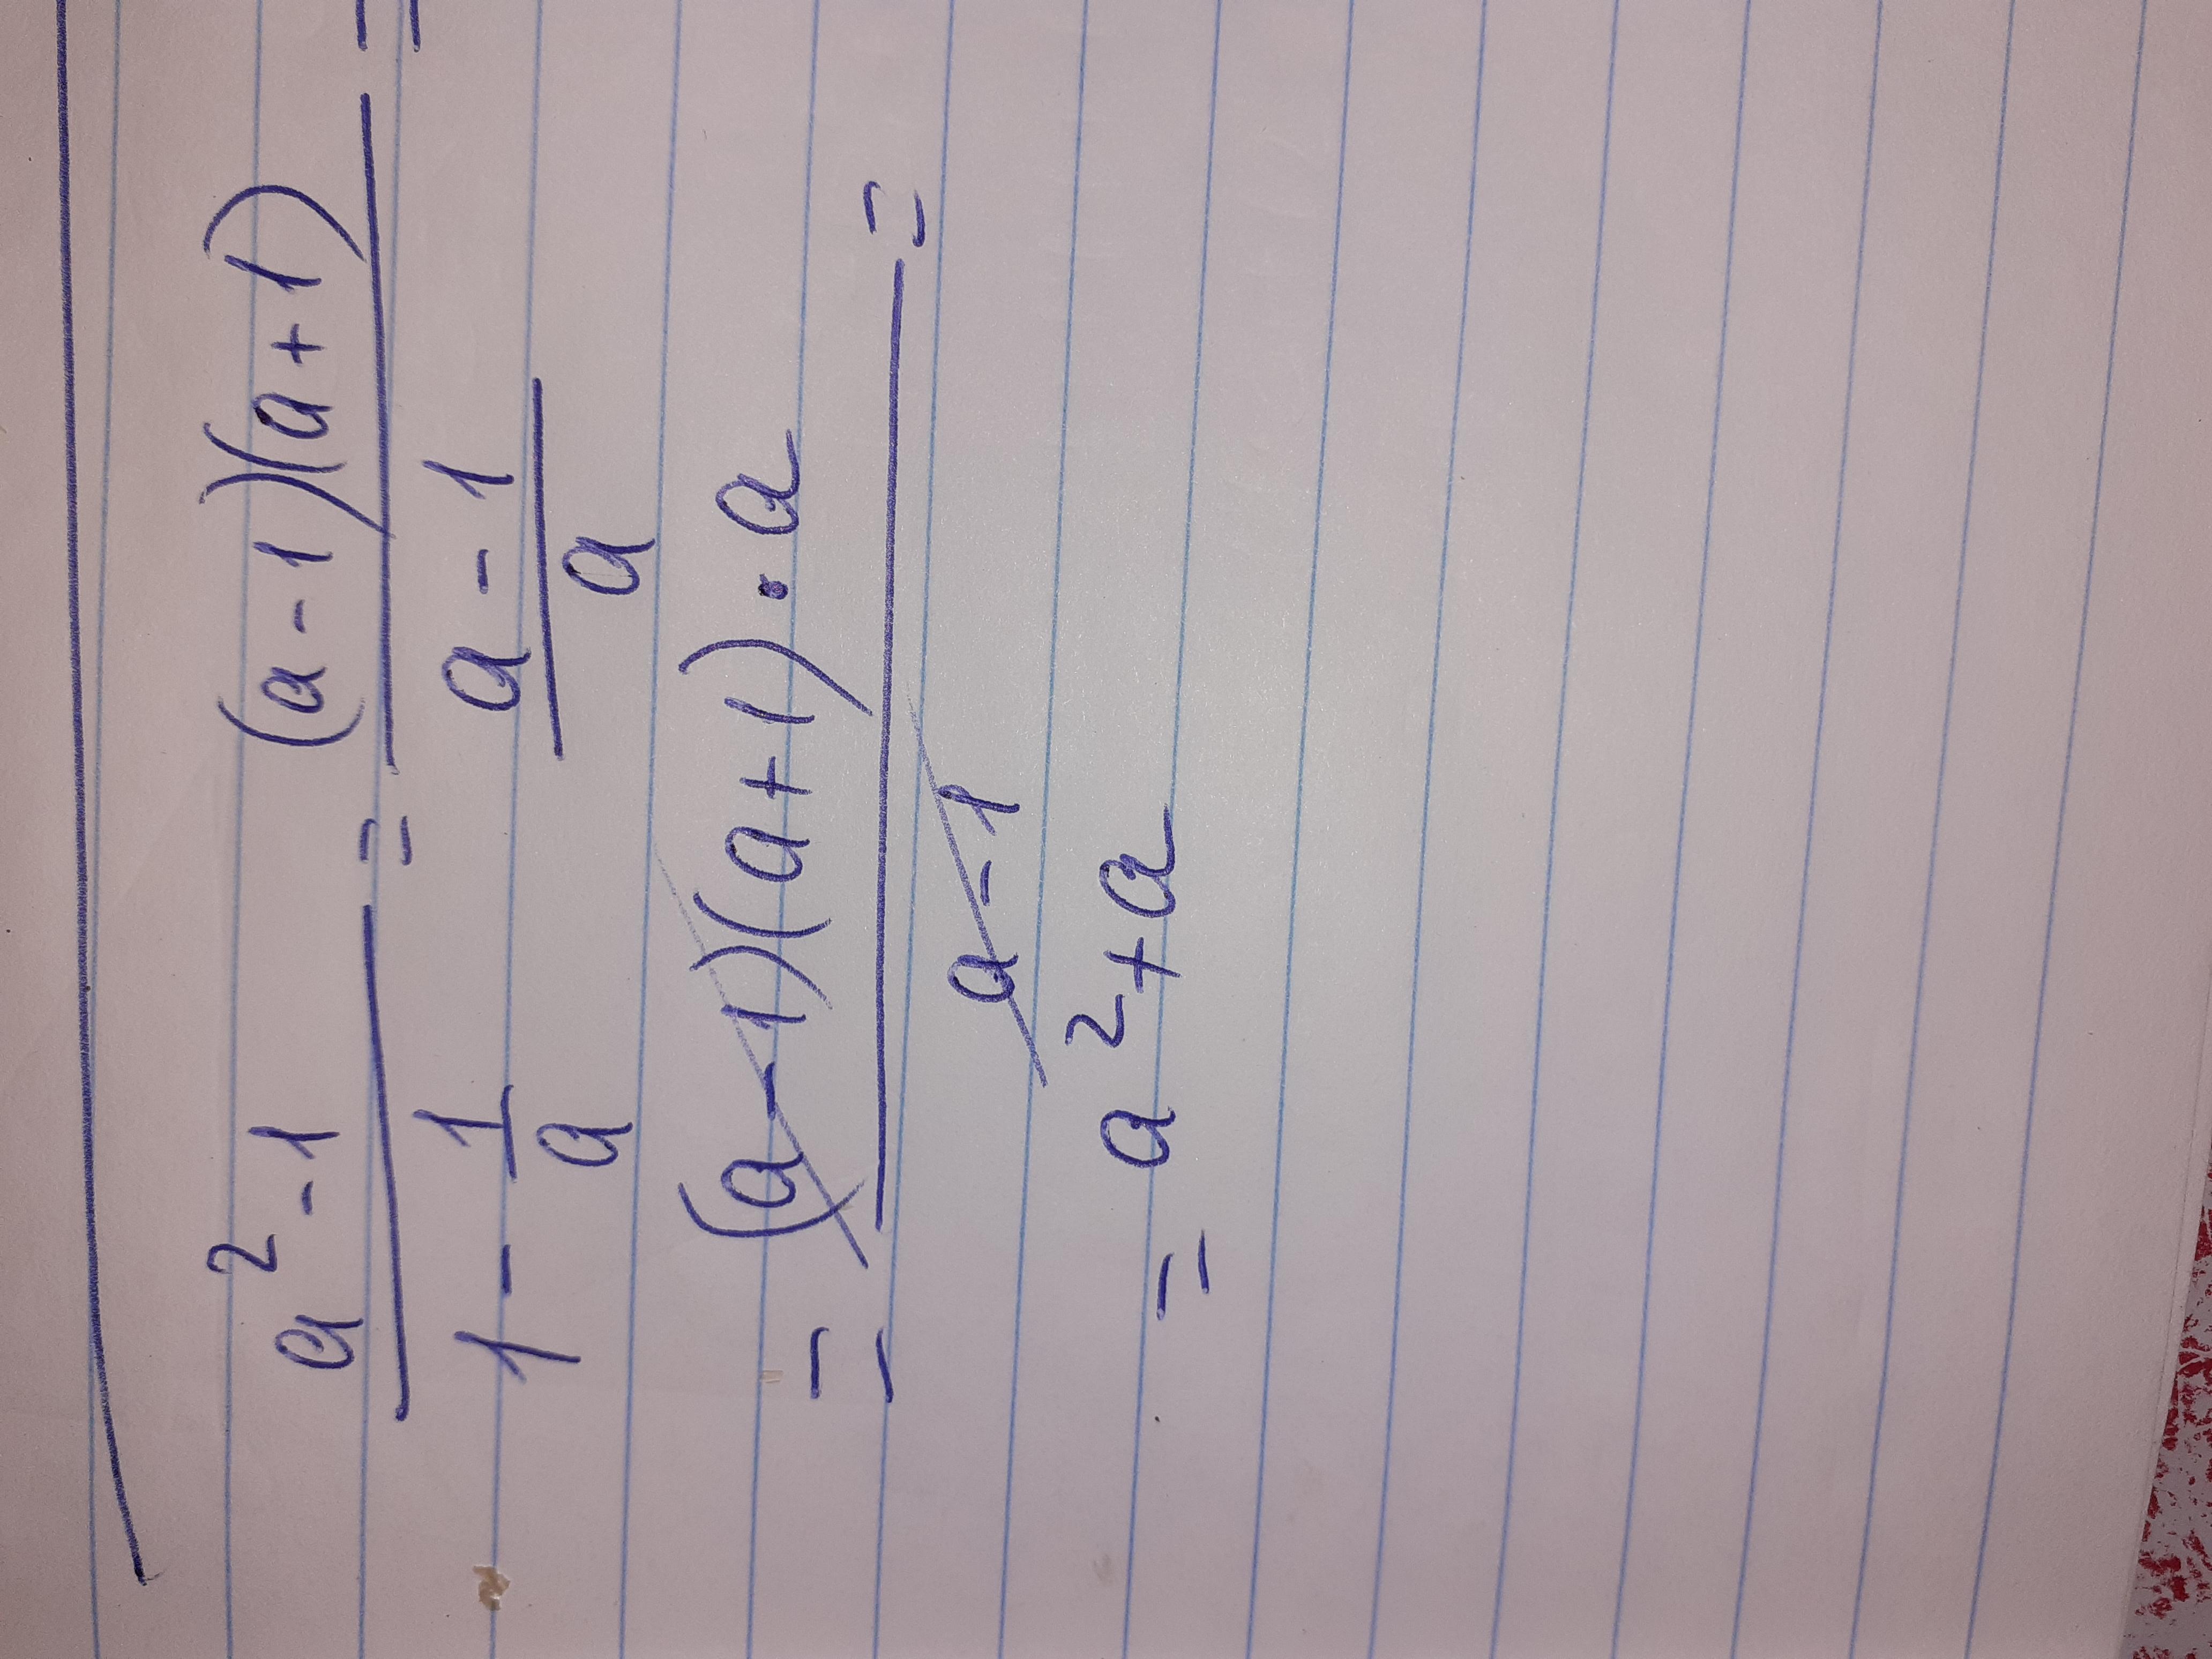 a² - 1 / (1 - 1/a) = (a - 1)(a + 1) / ((a - 1)/a) =
= (a - 1)(a + 1) · a / (a - 1) =
= a² + a